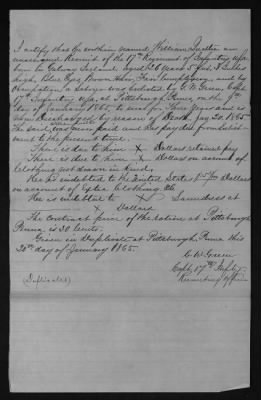 I certify that the within named, William Quilter an
unassigned Recruit of the 17th Regiment of Infantry USA
born in Galway Ireland aged 26 Years 5 feet 8 Inches
high, Blue Eyes, Brown Hair, Fair Complexion, and by
Occupation a Laborer was enlisted by C. W. Green Capt
17th Infantry USA, at Pittsburgh Penna, on the
day of January 1865, to serve Years and is
now Discharged by reason of Death Jan 20. 1865
The said was never paid and has pay due from enlist-
ment to the present time.
There is due to him X Dollars retained pay
There is due to him X Dollars on account of
Clothing not drawn in kind,
He is indebted to the United States Dollars
on account of Extra Clothing &c
He is indebted to X Laundress at
X Dollars
The contract price of the ration at Pittsburgh
Penna is 30 Cents.
Given in Duplicate at Pittsburgh, Penna this
day of January 1865.
C W Green
Capt 17th Infty
Recruiting Officer
(Duplicates)